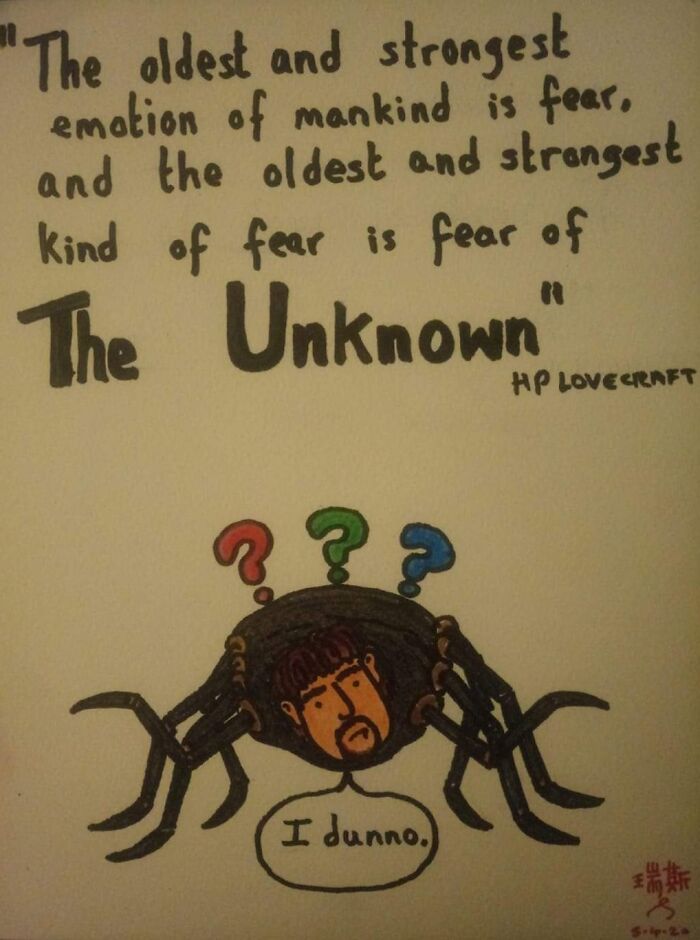 "The oldest and strongest
emotion of mankind is fear,
and the oldest and strongest
kind of fear is fear of
The Unknown"
HP LOVECRAFT
? ? ?
I dunno.
瑞斯